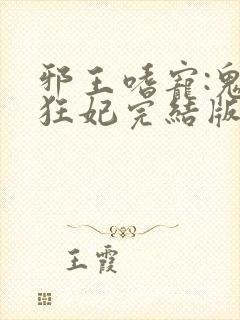 邪王嗜寵:鬼
狂妃完結版
王霞